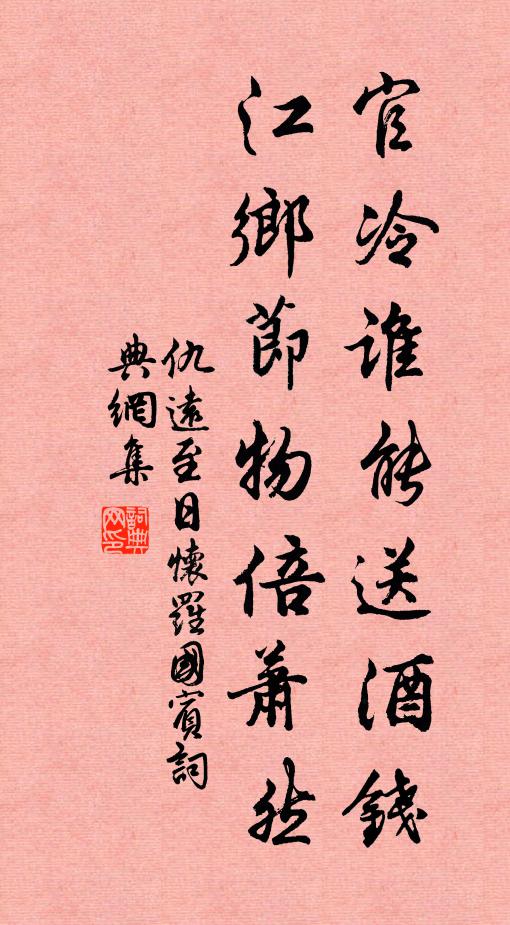 官冷誰能送酒錢
江鄉節物倍蕭然
仇遠至日懷羅國賓詞
典網集
詞典
网印